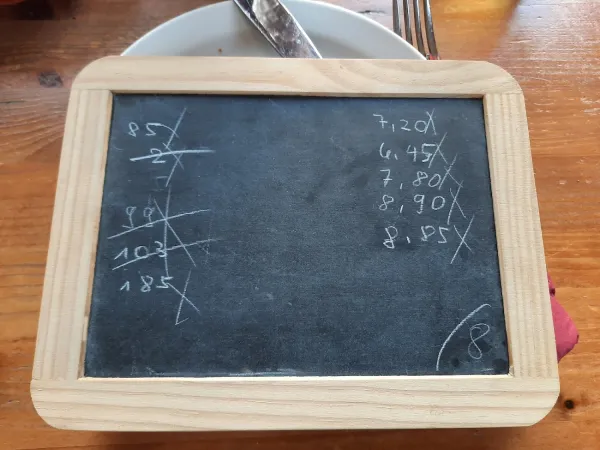 85
99
103
185
7,20
6,45
7,80
8,90
8,85
8